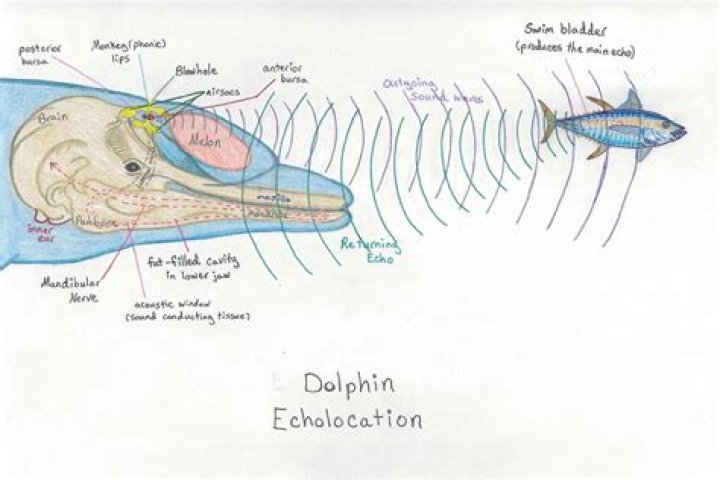 Swim bladder
(produces the main echo)
posterior
bursa
Monkey (phonic)
lips
Blowhole
airsacs
anterior
bursa
Outgoing
Sound waves
Brain
Melon
maxilla
mandible
Panbone
inner
ear
Returning
Echo
fat-filled cavity
in lower jaw
Mandibular
Nerve
acoustic window
(sound conducting tissue)
Dolphin
Echolocation